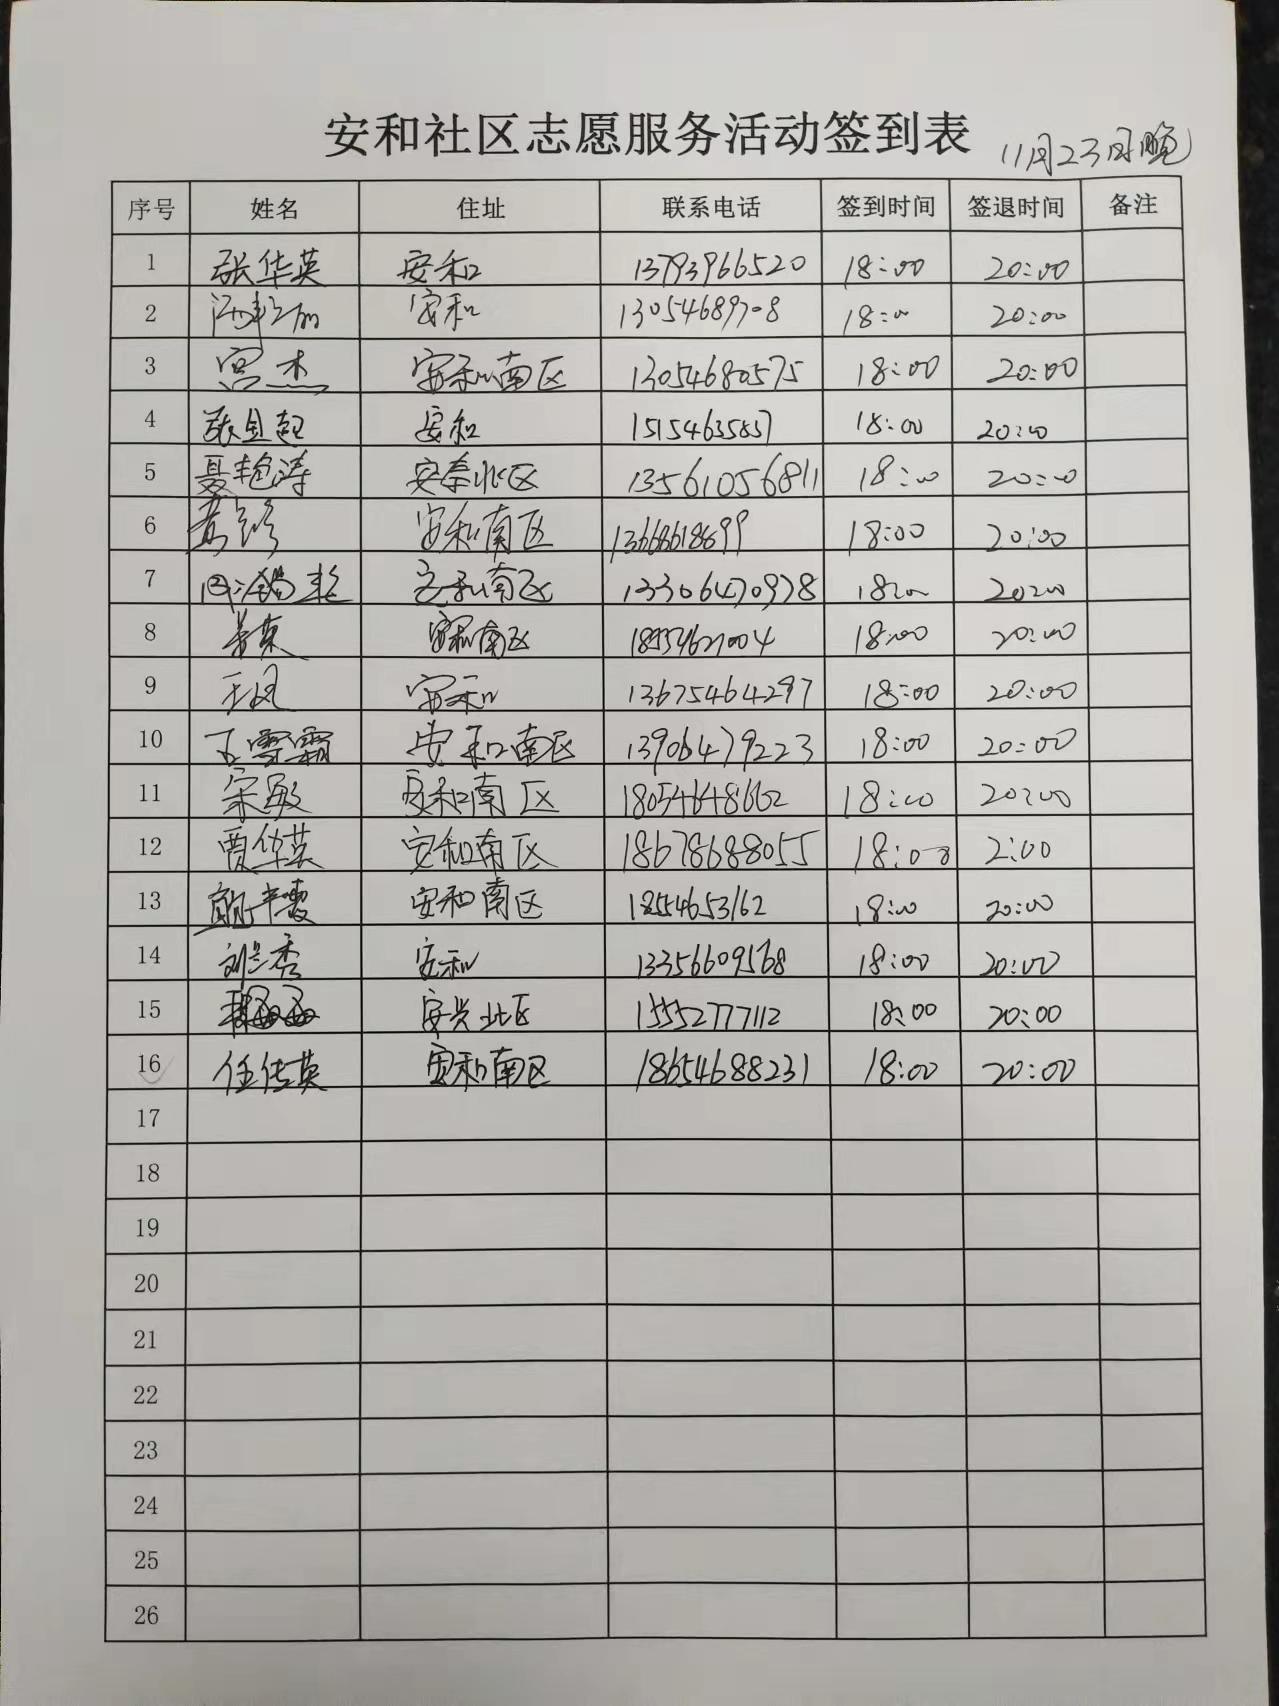 安和社区志愿服务活动签到表 11月23日晚
序号 姓名 住址 联系电话 签到时间 签退时间 备注
1 张华英 安和 13793966520 18:00 20:00
2 安和 13054689708 18:00 20:00
3 宫杰 安和南区 13054680575 18:00 20:00
4 安和 15154635857 18:00 20:00
5 聂艳涛 安泰北区 13561056811 18:00 20:00
6 安和南区 18:00 20:00
7 安和南区 13306470978 18:00 20:00
8 安和南区 18:00 20:00
9 安和 13675464297 18:00 20:00
10 安和南区 13906479223 18:00 20:00
11 宋敏 安和南区 18054648662 18:00 20:00
12 贾华英 安和南区 18678688055 18:00 2:00
13 安和南区 1854653162 18:00 20:00
14 刘兰秀 安和 13356609568 18:00 20:00
15 安兴北区 15552777112 18:00 20:00
16 任传英 安和南区 18654688231 18:00 20:00
17
18
19
20
21
22
23
24
25
26